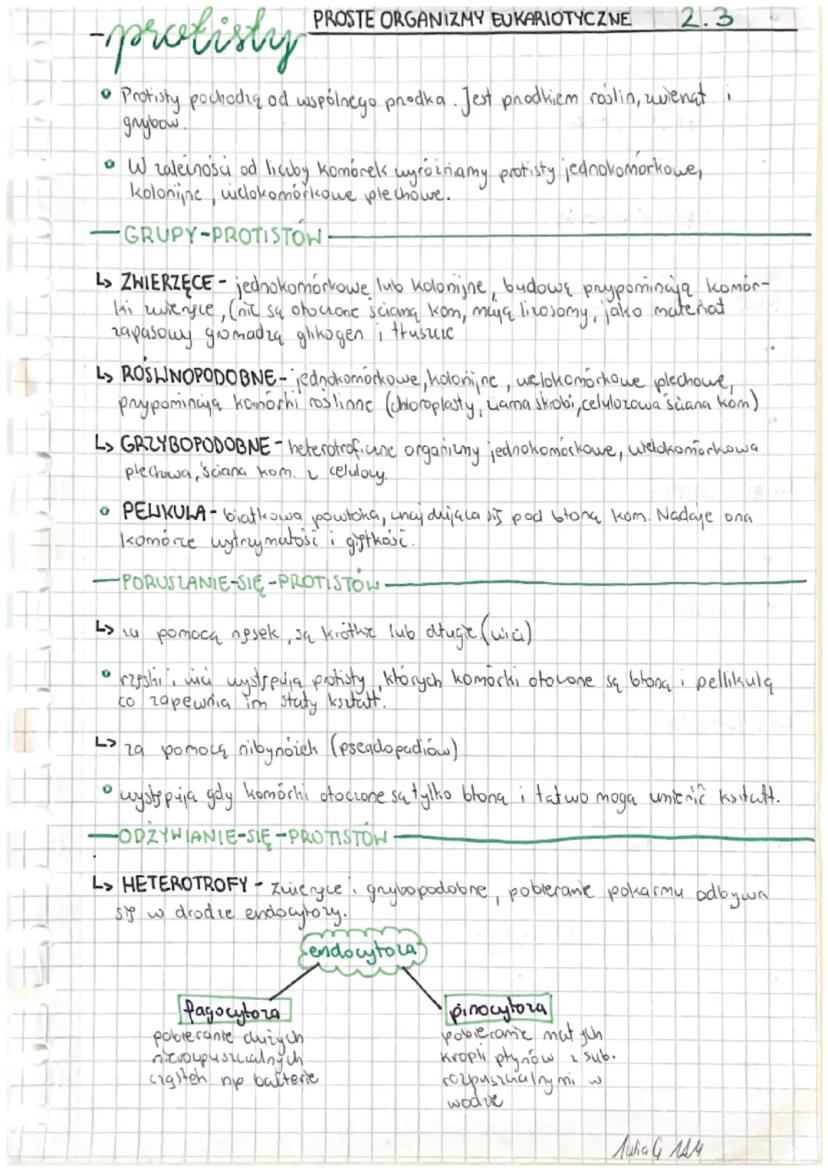 -protisty PROSTE ORGANIZMY EUKARIOTYCZNE 2.3
• Protisty pochodzą od wspólnego przodka. Jest przodkiem roślin, zwierząt i
grzybów.
• W zależności od liczby komórek wyróżniamy protisty jednokomórkowe,
kolonijne, wielokomórkowe plechowe.
GRUPY-PROTISTÓW
↳ ZWIERZĘCE - jednokomórkowe lub kolonijne, budową przypominają komór-
ki zwierzęce, (nie są otoczone ścianą kom, mają lizosomy, jako materiał
zapasowy gromadzą glikogen i tłuszcze
↳ ROŚLINOPODOBNE - jednokomórkowe, kolonijne, wielokomórkowe plechowe,
przypominają komórki roślinne (chloroplasty, ziarna skrobi, celulozowa ściana kom)
↳ GRZYBOPODOBNE - heterotroficzne organizmy jednokomórkowe, wielokomórkowa
plechowa, ściana kom. z celulozy.
• PELIKULA - białkowa powłoka, znajdująca się pod błoną kom. Nadaje ona
komórce wytrzymałość i giętkość.
PORUSZANIE-SIĘ-PROTISTÓW
↳ za pomocą rzęsek, są krótkie lub długie (wici)
• rzęski i wici występują protisty, których komórki otoczone są błoną i pellikulą
co zapewnia im stały kształt.
↳ za pomocą nibynóżek (pseadopadiów)
• występują gdy komórki otoczone są tylko błoną i łatwo mogą zmienić kształt.
ODŻYWIANIE-SIĘ-PROTISTÓW
↳ HETEROTROFY - zwierzęce i grzybopodobne, pobieranie pokarmu odbywa
się w drodze endocytozy.
endocytoza
fagocytoza pinocytoza
pobieranie dużych pobieranie małych
nierozpuszczalnych kropli płynów z sub.
cząstek np bakterie rozpuszczalnymi w
wodzie
Julia G